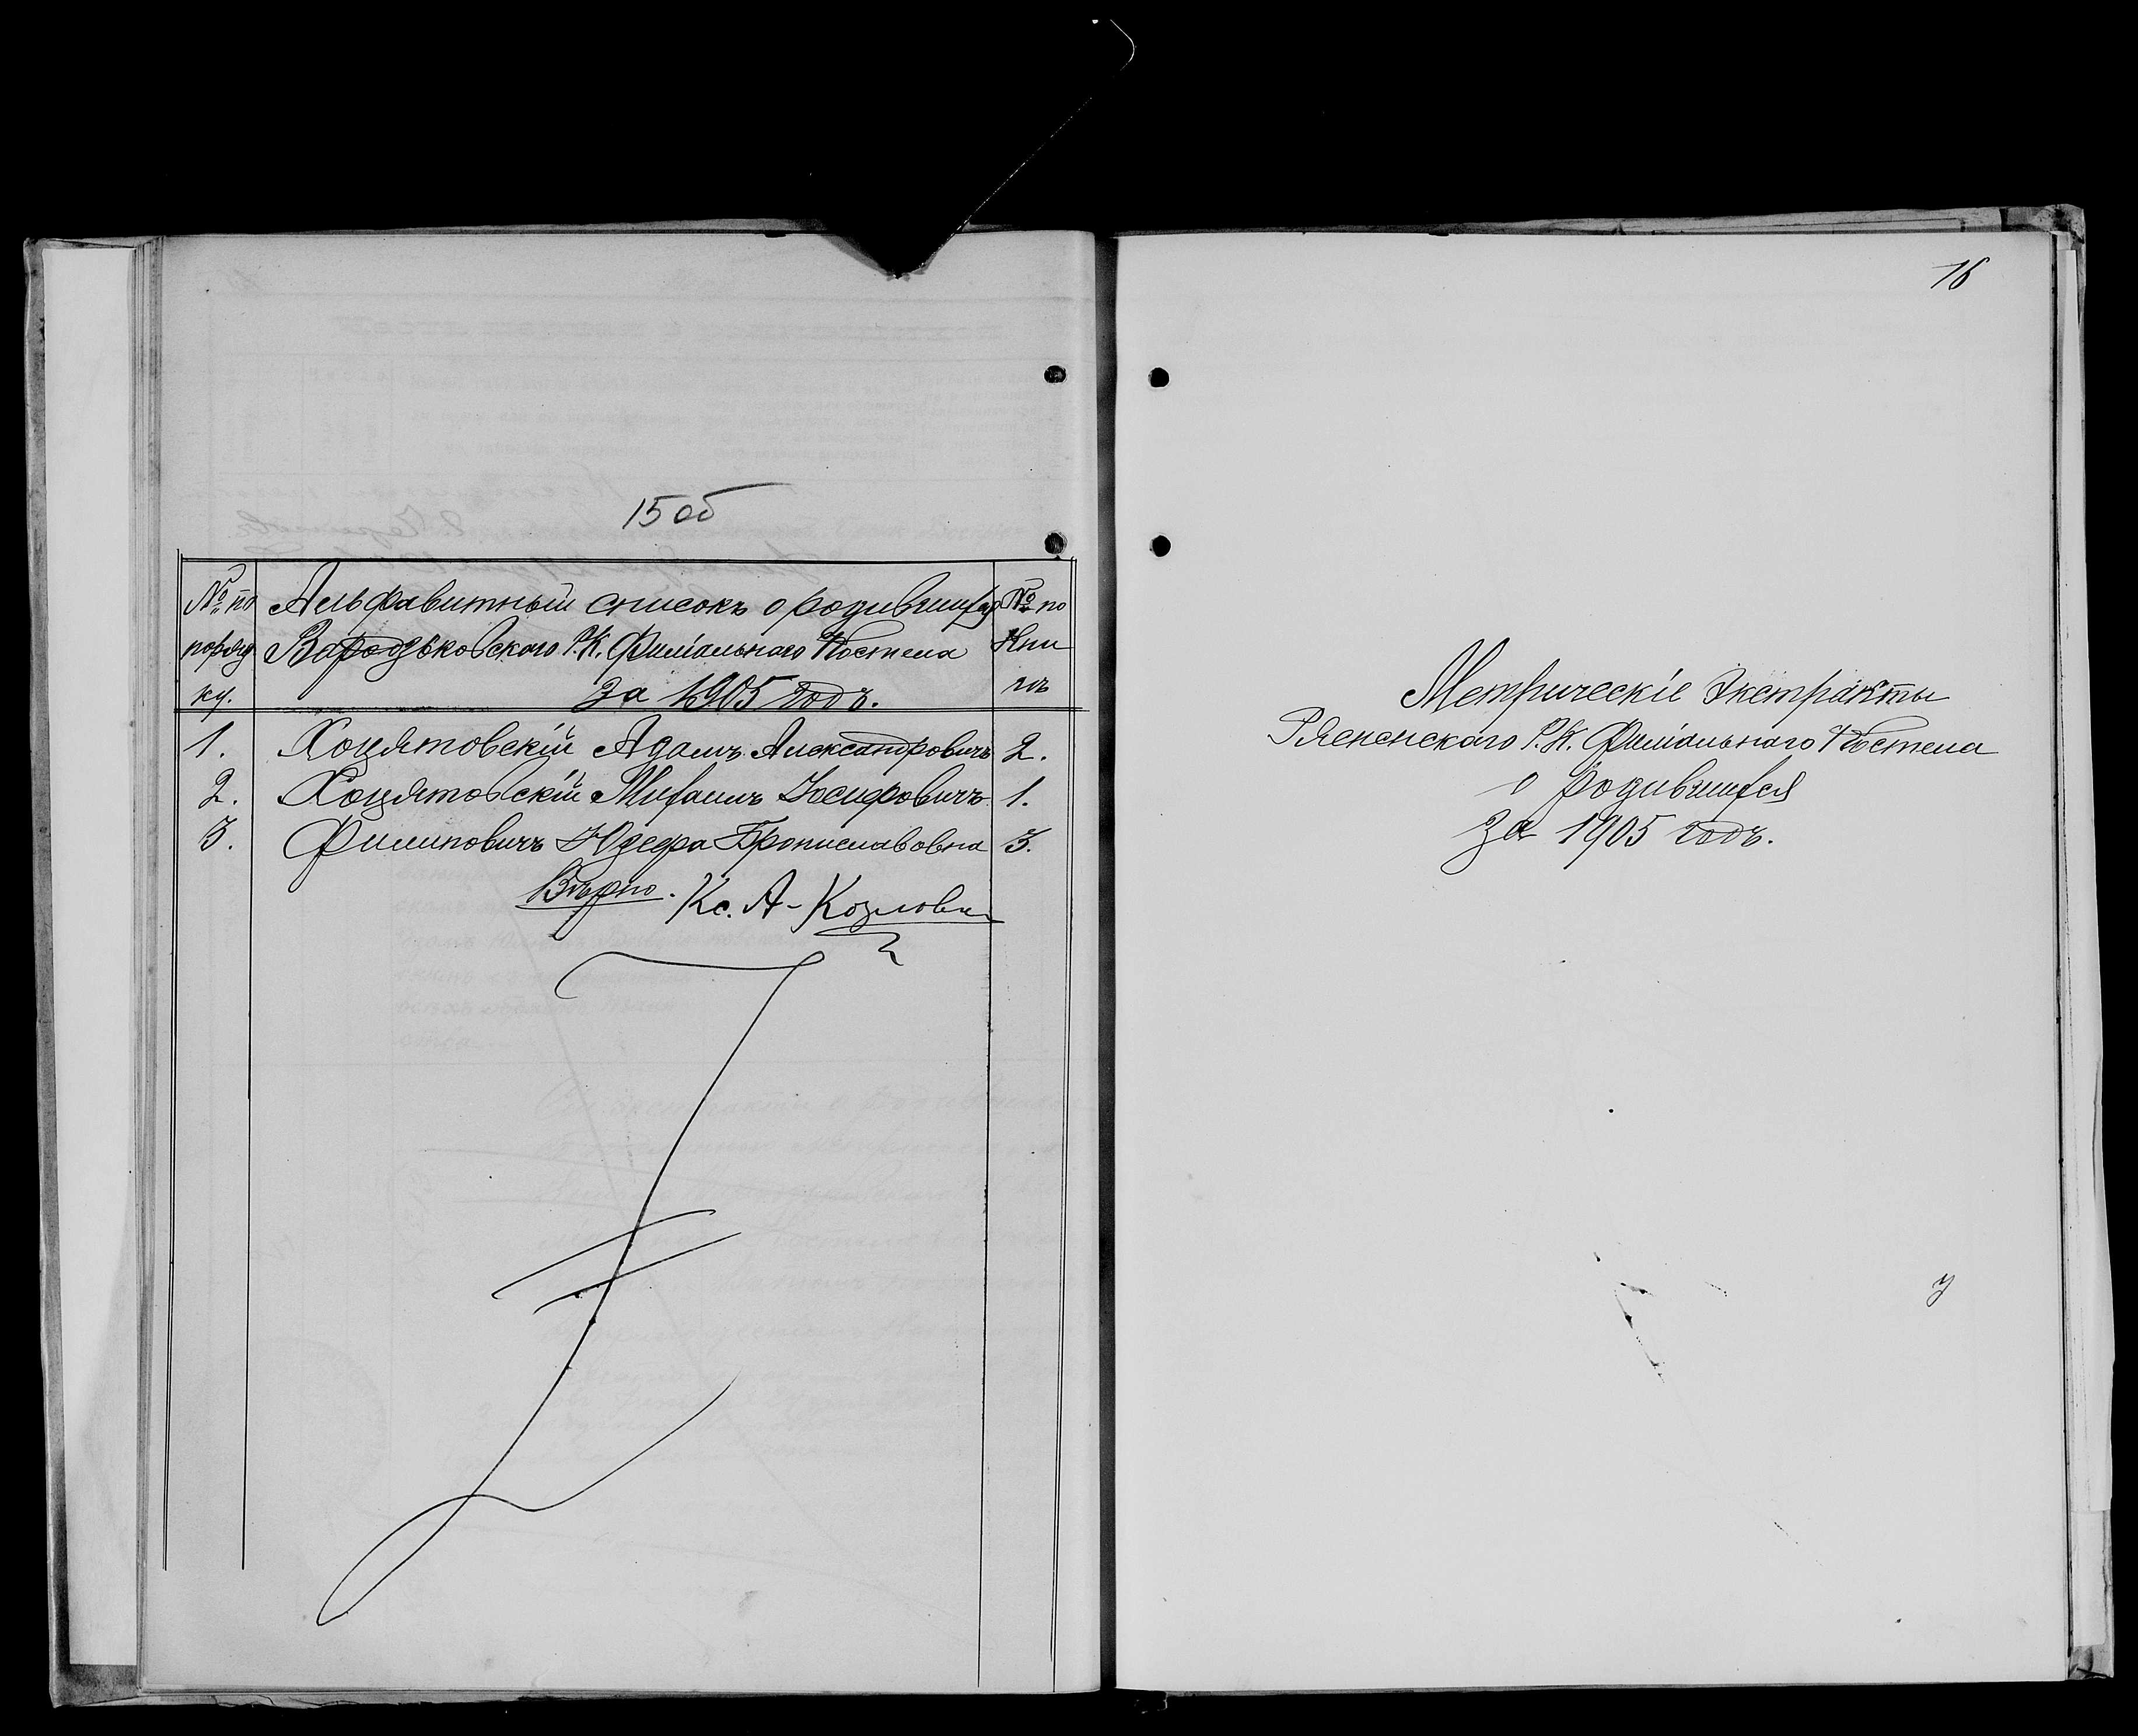 15 об
№ по Альфавитный списокъ о родившихся № по
поряд Вародзьковского Р.К. Филіальнаго Костела Кни
ку. За 1905 годъ. гѣ
1. Хоцятовскій Адамъ Александровичъ 2.
2. Хоцятовскій Михаилъ Іосифовичъ 1.
3. Филиповичъ Юзефа Брониславовна 3.
Вѣрно. Кс. А. Козловск
16
Метрическіе Экстракты
Рясненскаго Р.К. Филіальнаго Костела
о родившихся
За 1905 годъ.